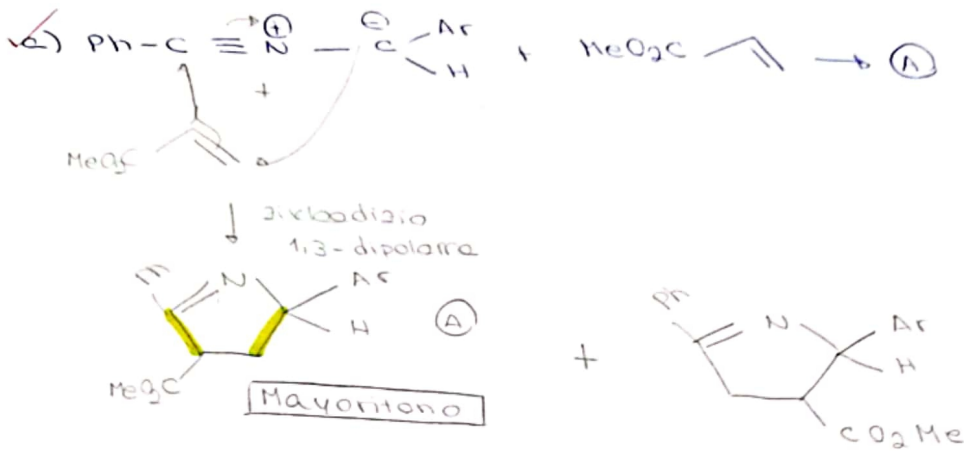 c) Ph-C ≡ N⊕ — C⊖ Ar H + MeO2C → A
+
MeO2C
↓ zikloadizio
1,3-dipolarra
Ph N Ar
H
A
MeO2C
Mayoritario
+
Ph N Ar
H
CO2Me